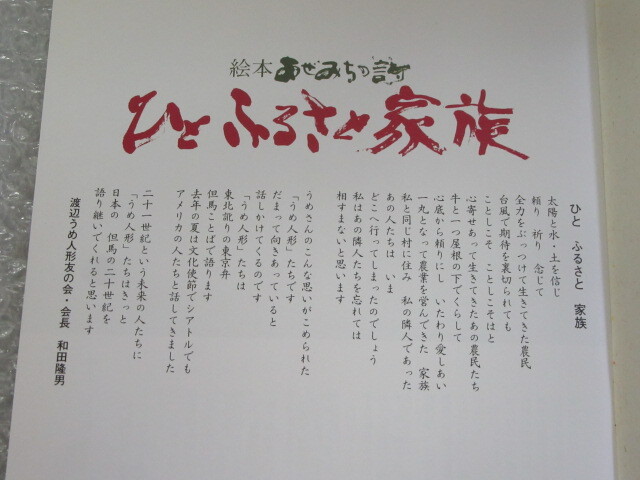 絵本 あぜみちの詩
ひと ふるさと 家族
ひと ふるさと 家族
太陽と水・土を信じ
頼り 祈り 念じて
全力をぶっつけて生きてきた農民
台風で期待を裏切られても
ことしこそ、ことしこそはと
心寄せあって生きてきたあの農民たち
牛と一つ屋根の下でくらして
心底から頼りにし いたわり愛しあい
一丸となって農業を営んできた 家族
私と同じ村に住み 私の隣人であった
あの人たちは いま
どこへ行ってしまったのでしょう
私はあの隣人たちを忘れては
相すまないと思います
うめさんのこんな思いがこめられた
「うめ人形」たちです
だまって向きあっていると
話しかけてくるのです
「うめ人形」たちは
東北訛りの東京弁
但馬ことばで語ります
去年の夏は文化使節でシアトルでも
アメリカの人たちと話してきました
二十一世紀という未来の人たちに
「うめ人形」たちはきっと
日本の 但馬の二十世紀を
語り継いでくれると思います
渡辺うめ人形友の会・会長 和田隆男